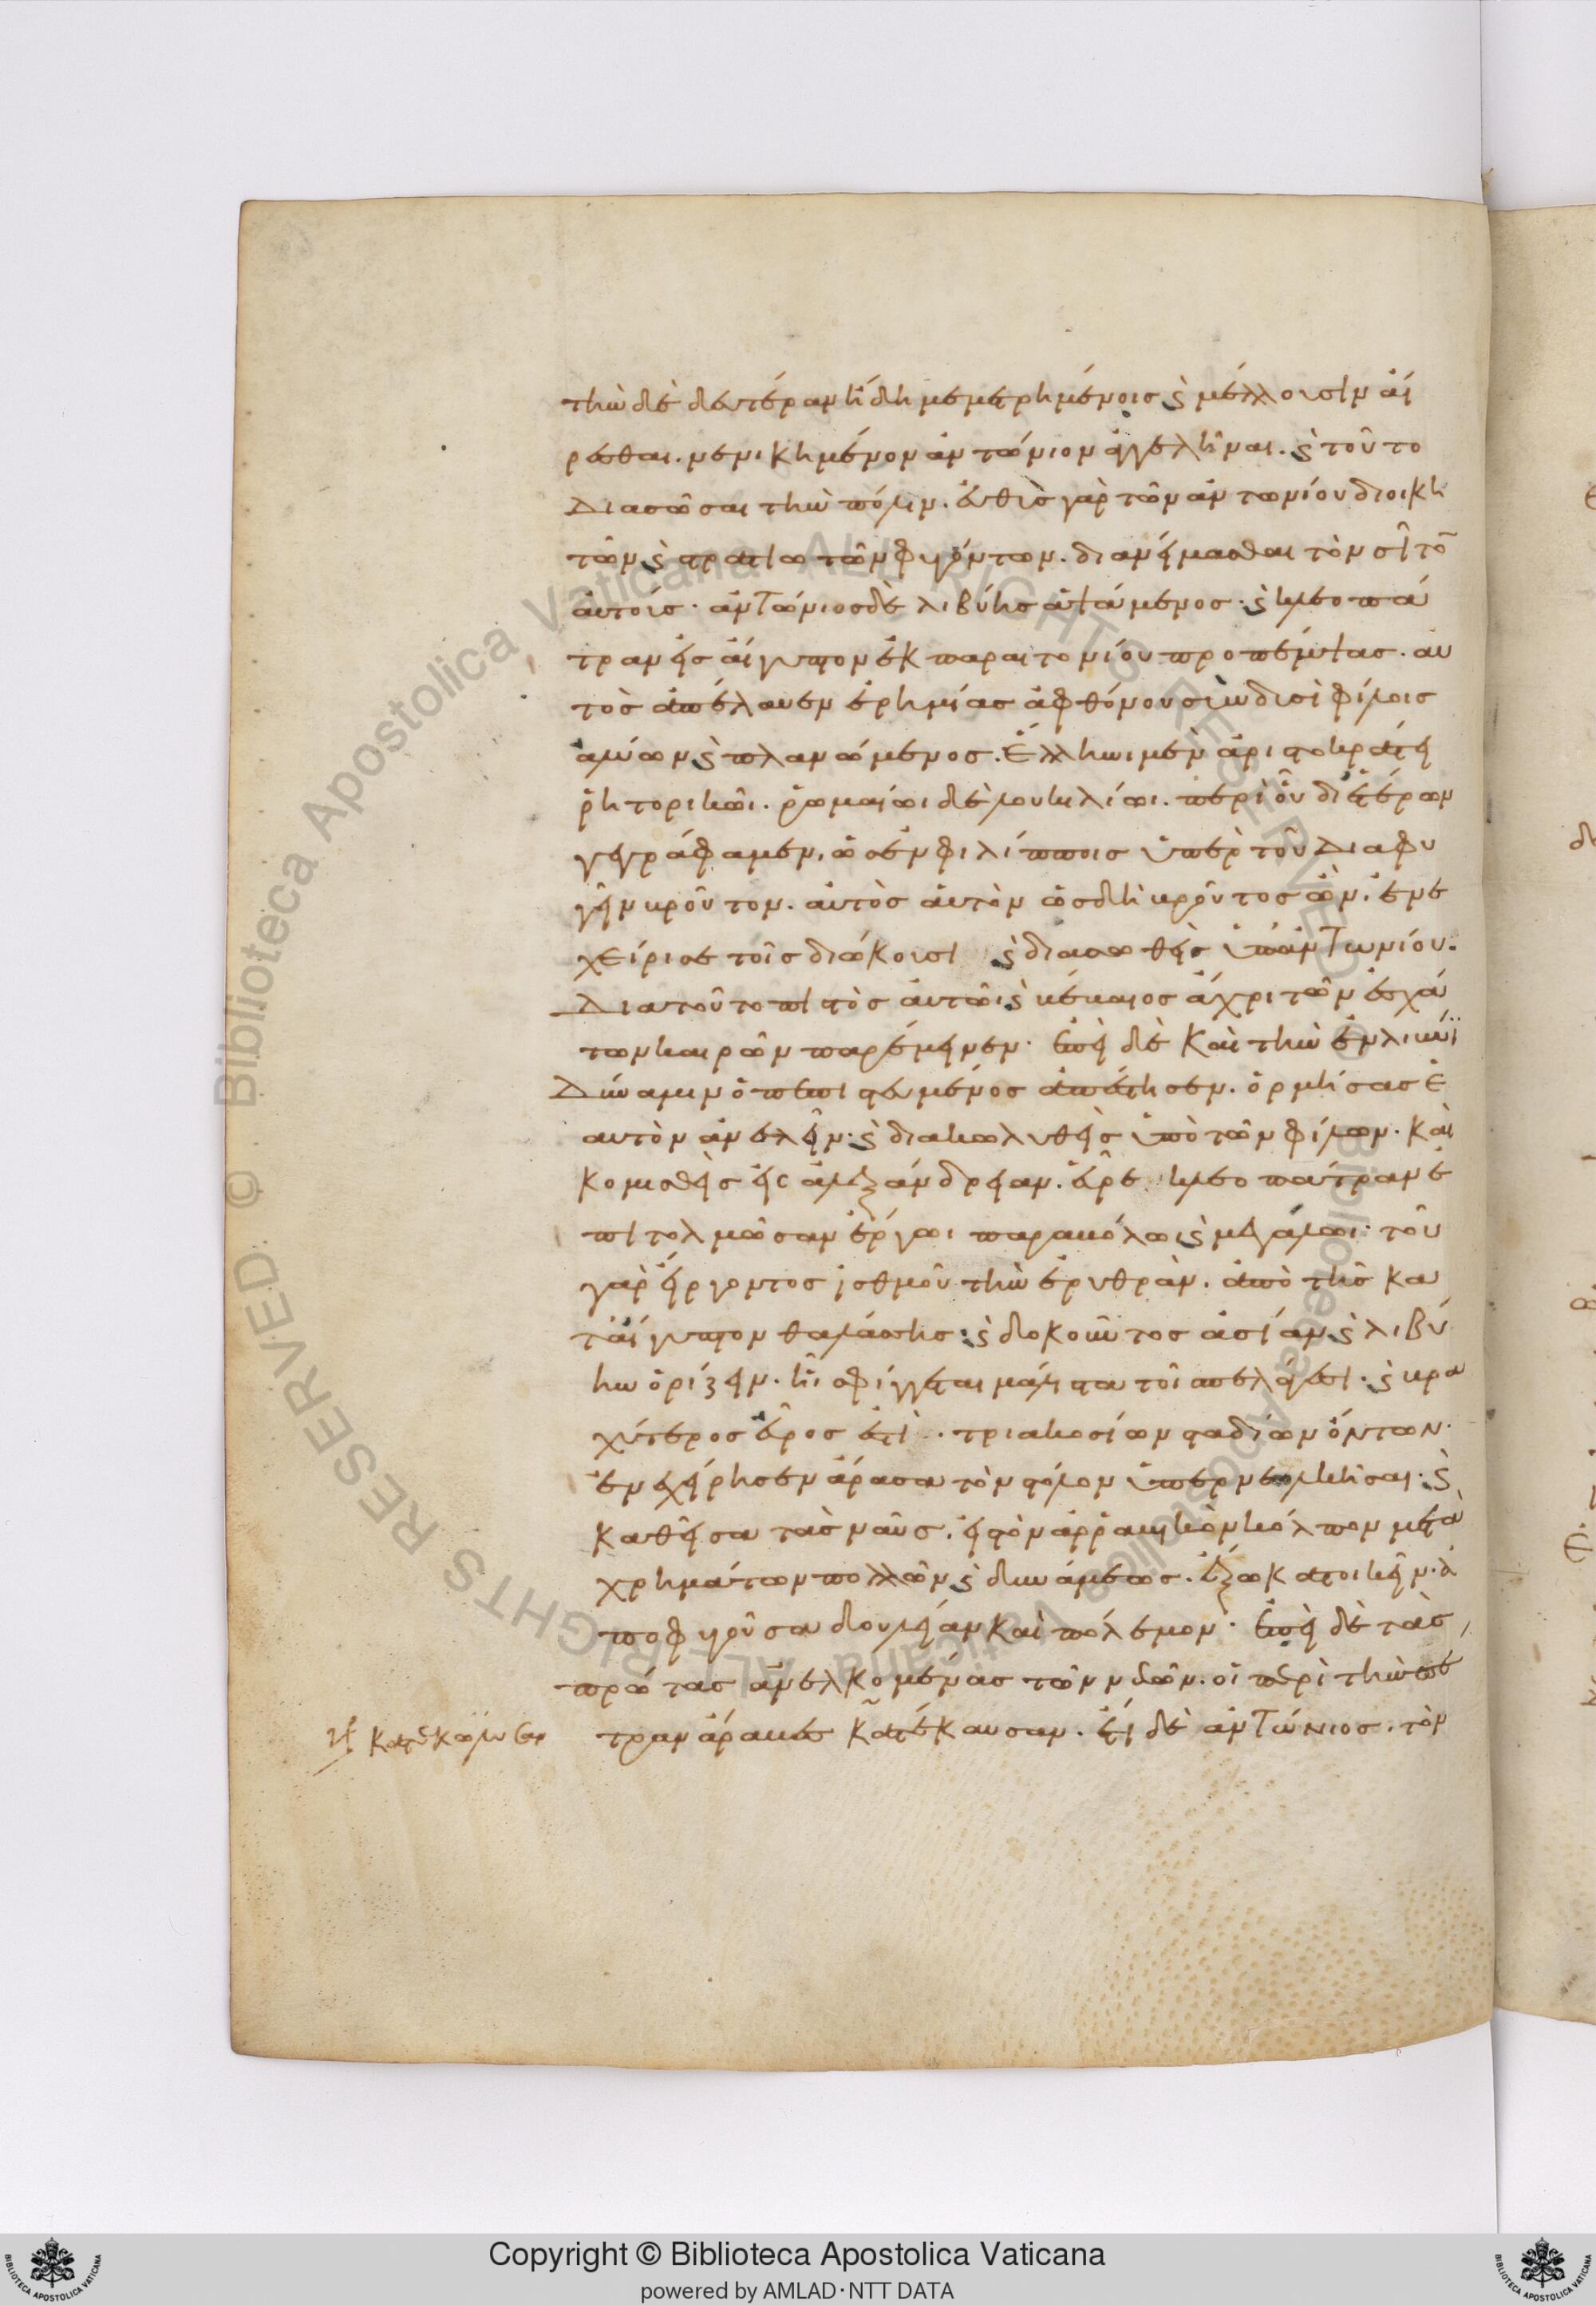 τὴν δὲ δευτέραν ἤδη μεμετρημένοις καὶ μέλλουσιν αἴ
ρεσθαι. νενικημένον ἀντώνιον ἀγγελῆναι. καὶ τοῦτο
διασῶσαι τὴν πόλιν. εὐθὺς γὰρ τῶν ἀντωνίου διοικη
τῶν καὶ στρατιωτῶν φυγόντων. διανείμασθαι τὸν σῖτο̅
αὐτοίς. ἀντώνιος δὲ λιβύης ἁψάμενος. καὶ κλεοπά
τραν εἰς αἴγυπτον ἐκ παραιτονίου προπέμψας. αὐ
τὸς ἀπέλαυεν ἐρημίας ἀφθόνου σὺν δυσὶ φίλοις
ἀλύων καὶ πλανώμενος. Ἕλληνι μὲν ἀριστοκράτει
ῥητορικῶι. ῥωμαίωι δὲ λουκιλίωι. περὶ οὗ δι ἑτέρων
γεγράφαμεν. ὡς ἐν φιλίπποις ὑπὲρ τοῦ διαφυ
γεῖν βροῦτον. αὐτὸς αὑτὸν ὡς δὴ βροῦτος ὢν. ἐνε
χείρισε τοῖς διώκουσι καὶ διασωθεὶς ὑπ' ἀντωνίου.
Διατοῦτο πιστὸς αὐτῶι καὶ βέβαιος ἄχρι τῶν ἐσχά
των καιρῶν παρέμεινεν. ἐπεὶ δὲ καὶ τὴν ἐν λιβύηϊ
Δύναμιν ὁ πεπιστευμένος ἀπέστησεν. ὁρμήσας ἑ
αυτὸν ἀνελεῖν. καὶ διακωλυθεὶς ὑπὸ τῶν φίλων. καὶ
κομισθεὶς εἰς ἀλεξάνδρειαν. εὗρε κλεοπάτραν ἐ
πιτολμῶσαν ἔργωι παραβόλωι καὶ μεγάλωι. τοῦ
γὰρ εἴργοντος ἰσθμοῦ τὴν ἐρυθρὰν. ἀπὸ τῆς κα
τ αἴγυπτον θαλάσσης. καὶ δοκοῦντος ἀσίαν καὶ λιβύ
ην ὁρίζειν. ἧι σφίγγεται μάλιστα τοῖ πελάγεσι. καὶ βρα
χύτερος εὖρος ἐστὶ. τριακοσίων σταδίων ὄντων.
ἐνεχείρησεν ἄρασα τὸν στόλον ὑπερνεολκῆσαι. καὶ
καθεῖσα τὰς ναῦς. εἰς τὸν ἀρραβικὸν κόλπον μετὰ
χρημάτων πολλῶν καὶ δυνάμεως. ἔξω κατοικεῖν. ἀ
ποφυγοῦσα δουλείαν καὶ πόλεμον. ἐπεὶ δὲ τὰς
πρώτας ἀνελκομένας τῶν νεῶν. οἱ περὶ τὴν πέ
τραν ἄραβες κατέκαυσαν. ἔτι δὲ ἀντώνιος. τὸν